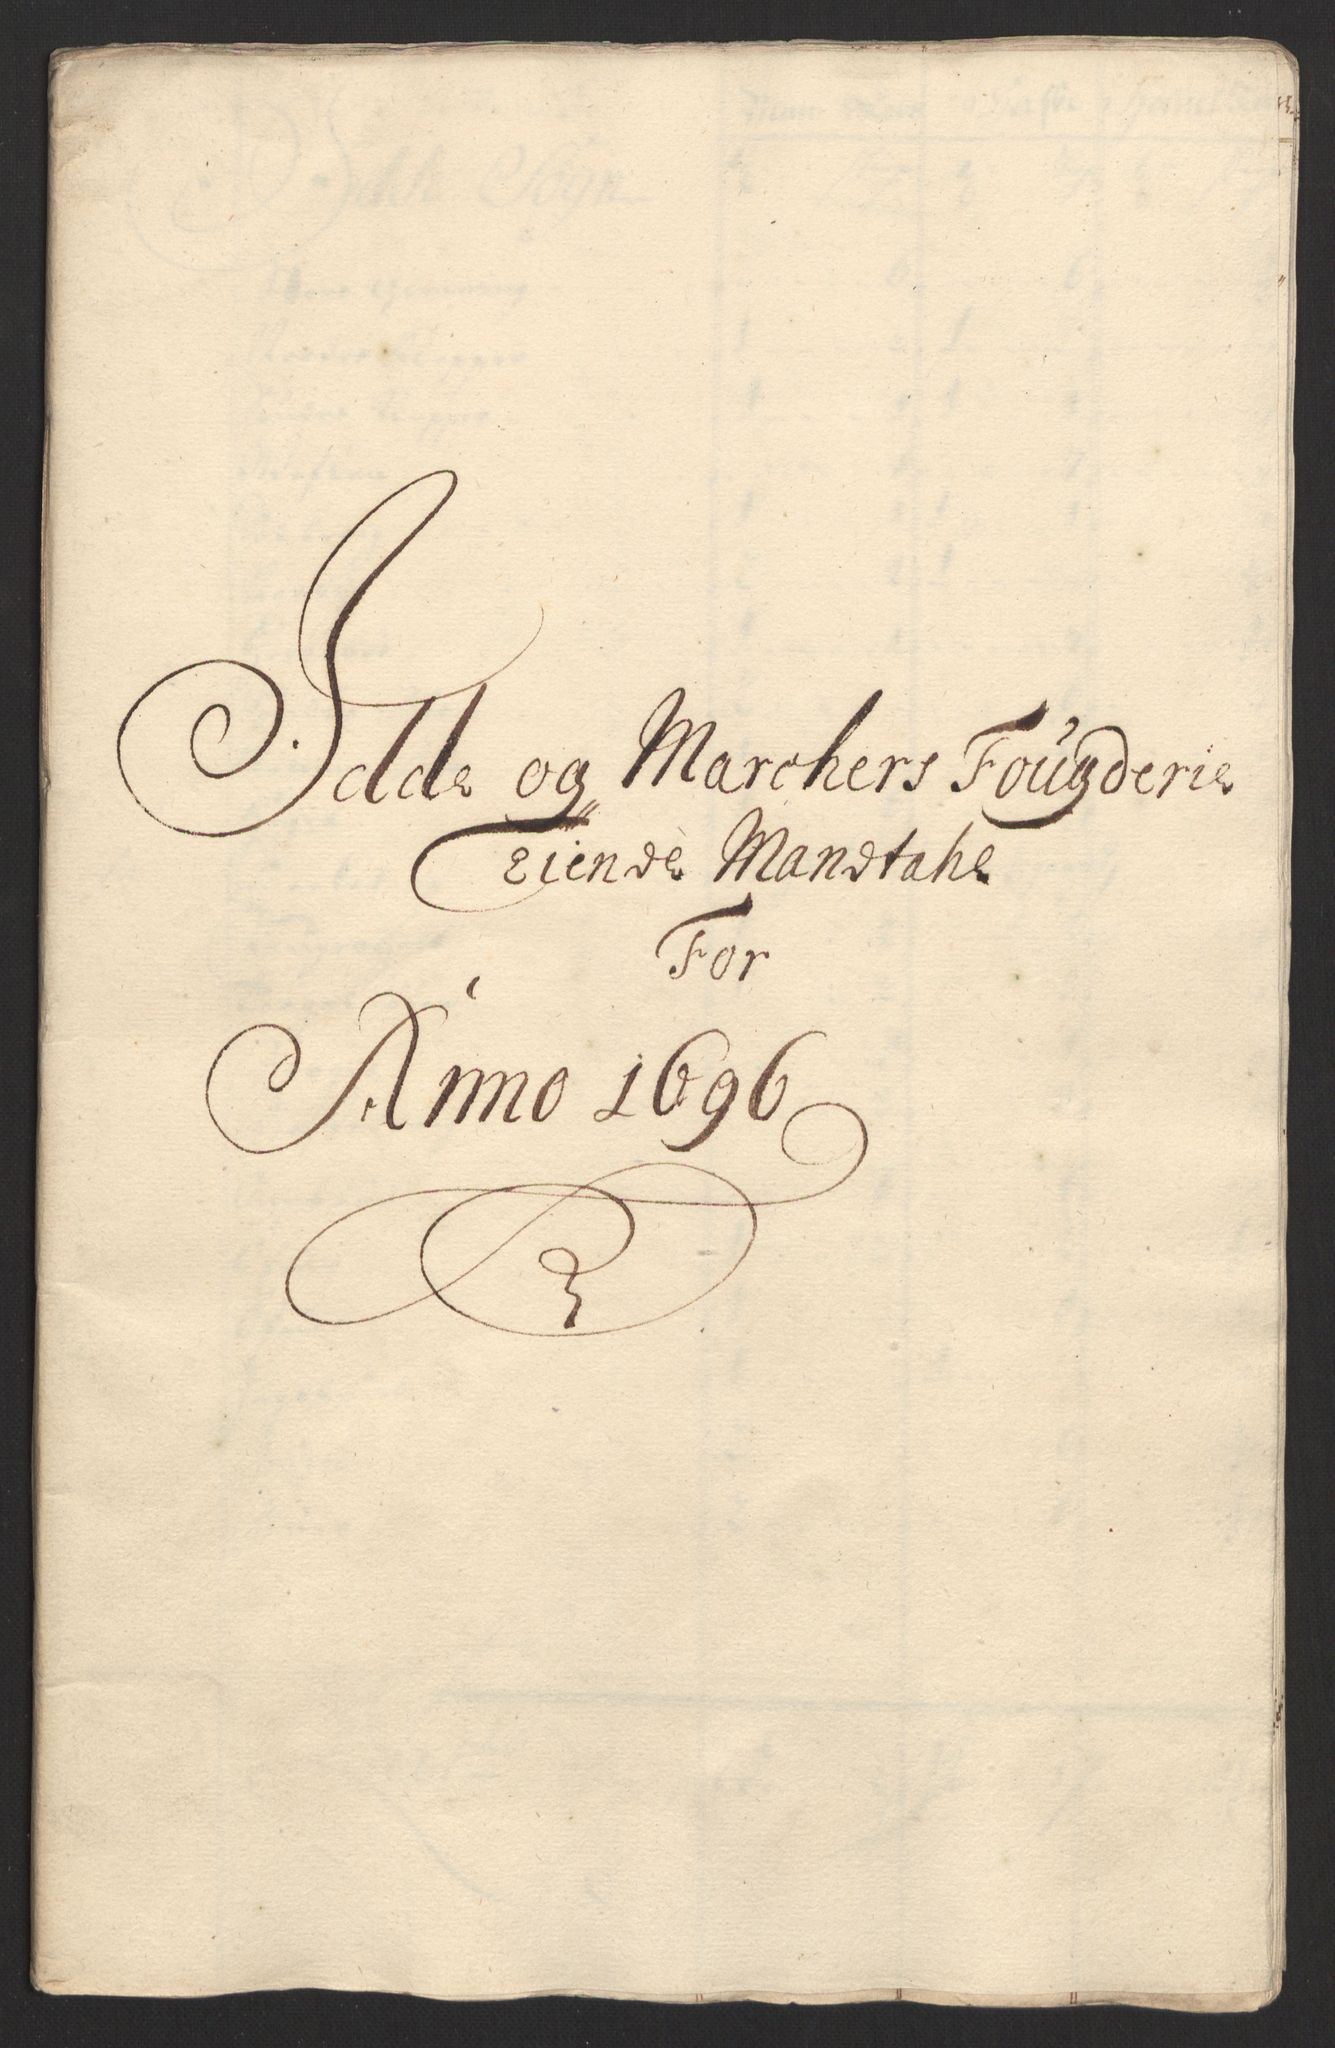 Idde og Marchers Fougderie
Tiende Mandtahl
For
Anno 1696